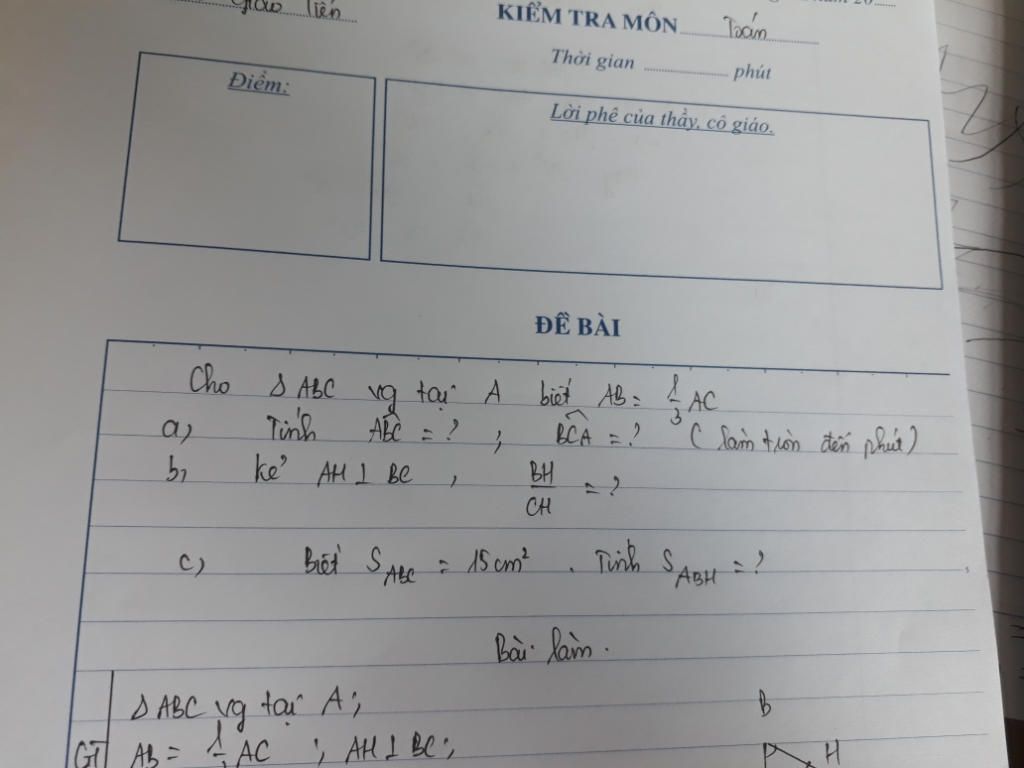 Giao Tiến
KIỂM TRA MÔN Toán
Thời gian ............ phút
Điểm:
Lời phê của thầy, cô giáo.
ĐỀ BÀI
Cho Δ ABC vg tại A biết AB = 1/3 AC
a, Tính ABC = ? ; BCA = ? (làm tròn đến phút)
b, kẻ AH ⊥ BC , BH/CH = ?
c, Biết S_ABC = 15cm² . Tính S_ABH = ?
Bài làm.
Δ ABC vg tại A ; B
GT AB = 1/3 AC ; AH ⊥ BC ; H